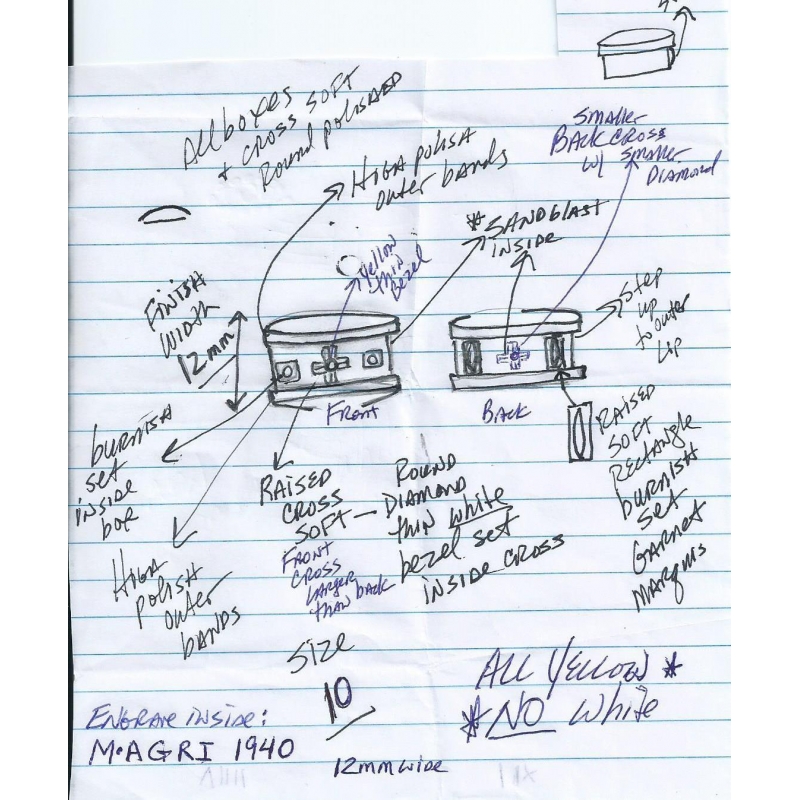 All boxes
+ CROSS SOFT
Round polished
HIGH POLISH
outer bands
Smaller
BACK CROSS
w/ Smaller
DIAMOND
* SANDBLAST
INSIDE
Yellow
thin
Bezel
FINISH
WIDTH
12mm
Step
up
to outer
Lip
Front
BACK
burnish
set
inside
box
HIGH
POLISH
outer
BANDS
RAISED
CROSS
SOFT —
FRONT
CROSS
LARGER
than back
ROUND
DIAMOND
thin white
bezel set
INSIDE CROSS
RAISED
SOFT
RECTANGLE
burnish
set
GARNET
MARQUIS
SIZE
10
12mm wide
ALL YELLOW *
* NO White
ENGRAVE INSIDE:
M•AGRI 1940